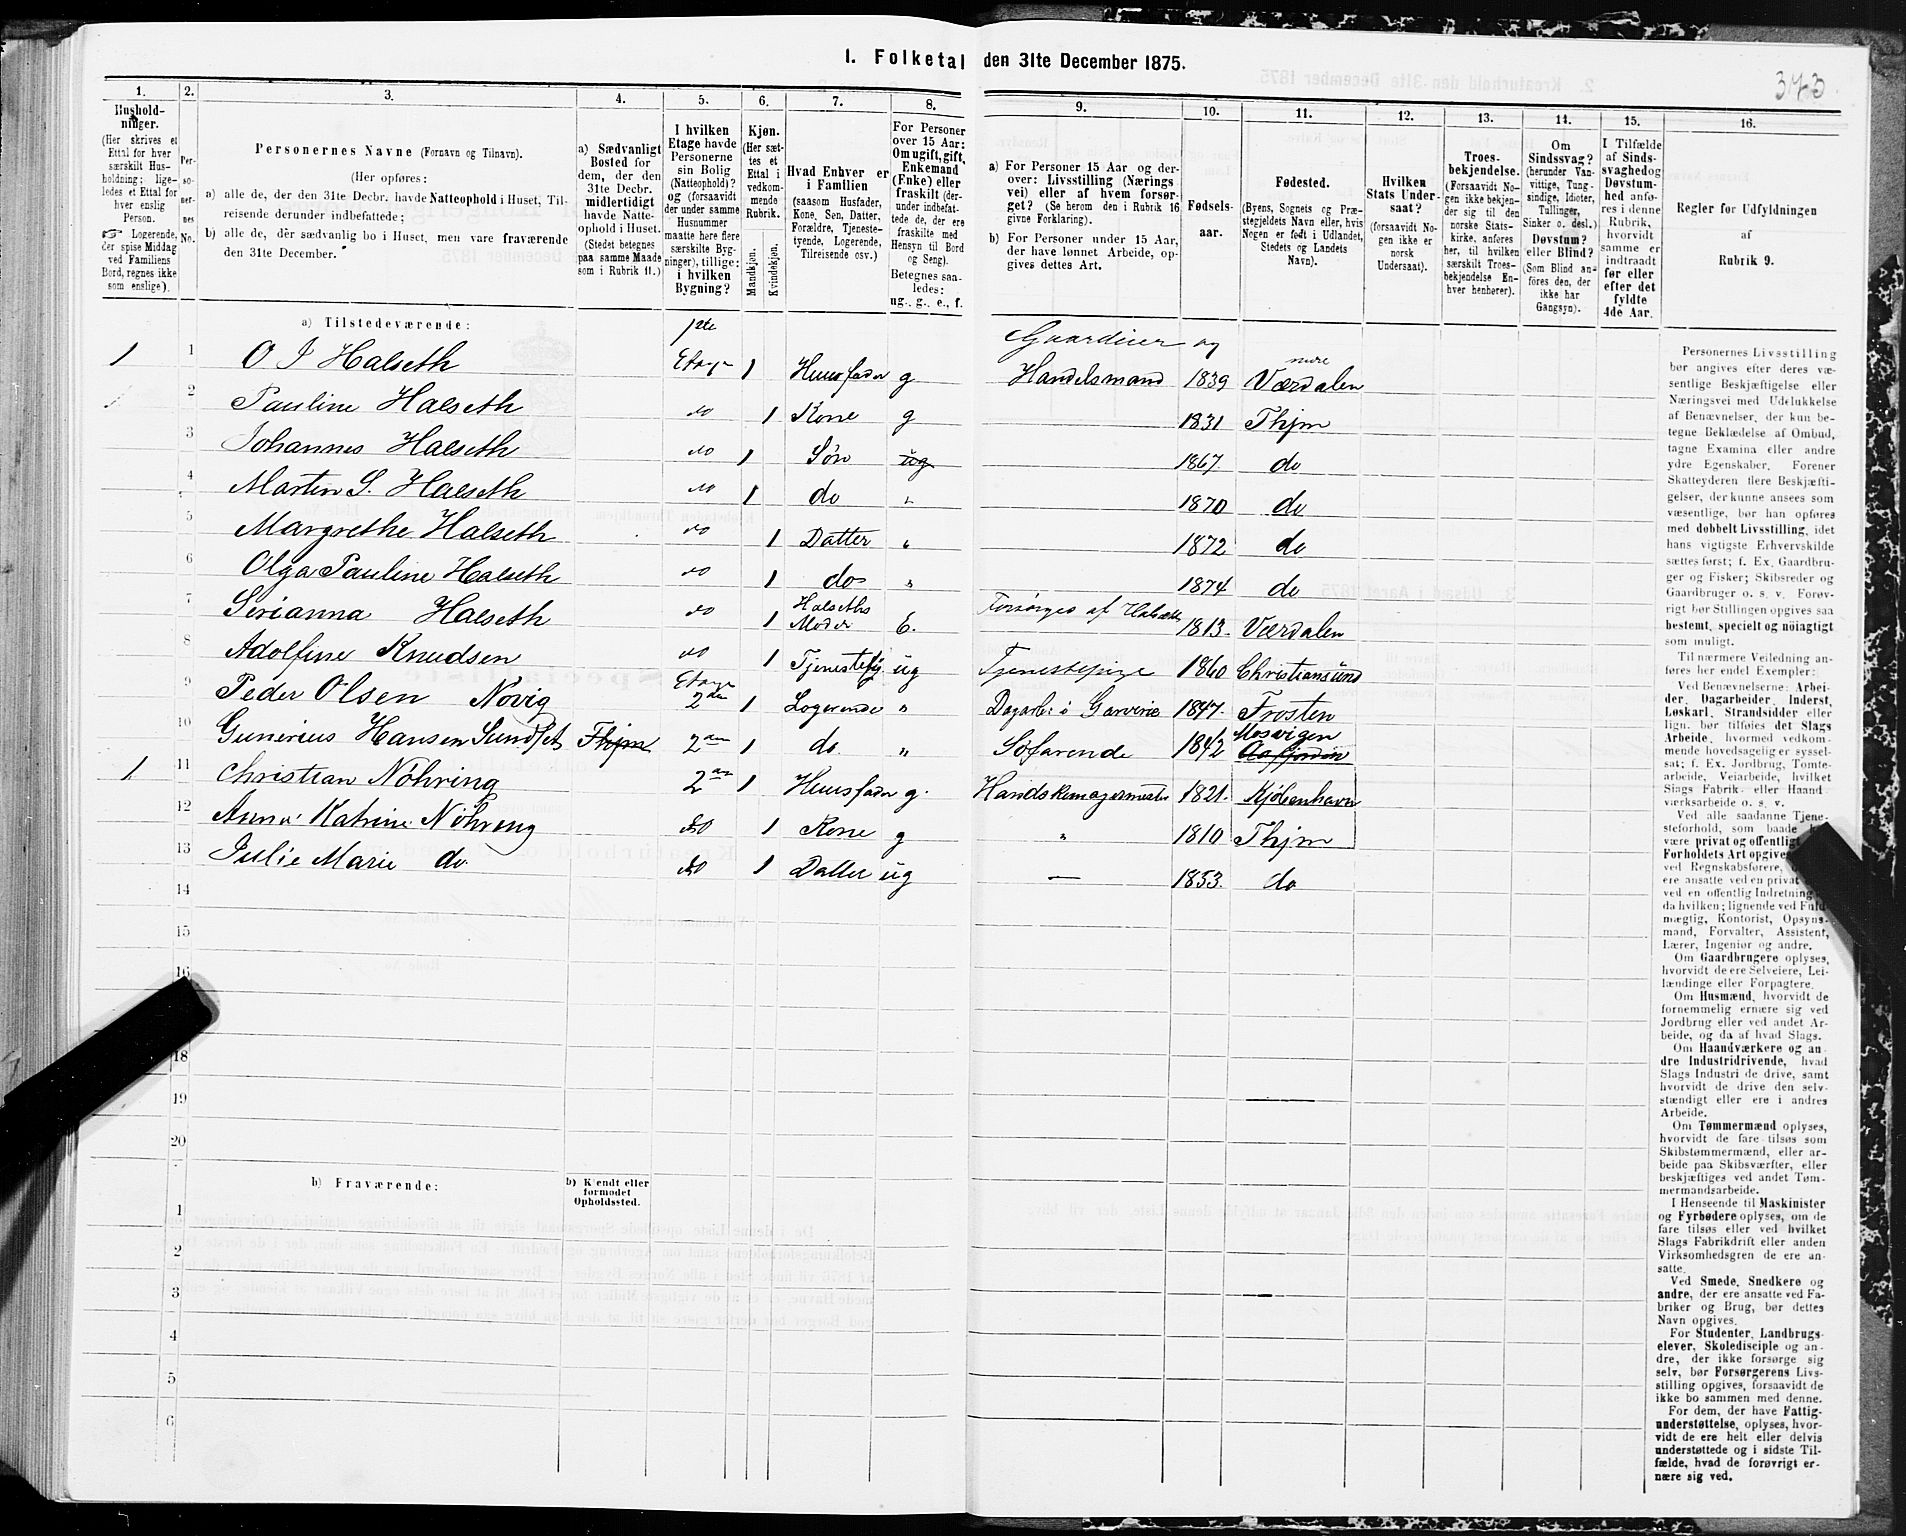 I. Folketal den 31te December 1875.
373
1.
Husholdninger.
(Her skrives et
Ettal for hver
særskilt Husholdning;
ligeledes et Ettal for
hver enslig
Person.
☞ Logerende,
der spise Middag
ved Familiens
Bord, regnes ikke
som enslige).
2.
Personernes
No.
3.
Personernes Navne (Fornavn og Tilnavn).
(Her opføres:
a) alle de, der den 31te Decbr. havde Natteophold i Huset, Tilreisende
derunder indbefattede;
b) alle de, der sædvanlig bo i Huset, men vare fraværende
den 31te December.
4.
a) Sædvanligt
Bosted for
dem, der den
31te Decbr.
midlertidigt
havde Natteophold
i Huset.
(Stedet betegnes
paa samme Maade
som i Rubrik 11.)
5.
I hvilken
Etage havde
Personerne
sin Bolig
(Natteophold)?
og (forsaavidt
der under samme
Husnummer
maatte høre flere
særskilte Bygninger),
tillige:
i hvilken
Bygning?
6.
Kjøn.
(Her sættes
et
Ettal i
vedkommende
Rubrik.
Mandkjøn.
Kvindekjøn.
7.
Hvad Enhver er
i Familien
(saasom Husfader,
Kone, Søn, Datter,
Forældre, Tjenestetyende,
Logerende,
Tilreisende osv.)
8.
For Personer
over 15 Aar:
Om ugift, gift,
Enkemand
(Enke) eller
fraskilt (derunder
indbefattede
de, der ere
fraskilte med
Hensyn til Bord
og Seng).
Betegnes saaledes:
ug., g., e., f.
9.
a) For Personer 15 Aar og derover:
Livsstilling (Næringsvei)
eller af hvem forsørget?
(Se herom den i Rubrik 16
givne Forklaring).
b) For Personer under 15 Aar,
der have lønnet Arbeide, opgives
dettes Art.
10.
Fødselsaar.
11.
Fødested.
(Byens, Sognets og Præstegjeldets
Navn eller, hvis
Nogen er født i Udlandet,
Stedets og Landets
Navn).
12.
Hvilken
Stats Undersaat?
(forsaavidt Nogen
ikke er
norsk
Undersaat).
13.
Troesbekjendelse.
(Forsaavidt Nogen
ikke bekjender
sig til den
norske Statskirke,
anføres
her, til hvilken
særskilt Troesbekjendelse
Enhver
henhører).
14.
Om
Sindssvag?
(herunder Vanvittige,
Tungsindige,
Idioter,
Tullinger,
Sinker o. desl.)
Døvstum?
eller Blind?
(Som Blind anføres
den, der
ikke har
Gangsyn).
15.
I Tilfælde
af Sindssvaghed
og
Døvstumhed
anføres
i denne
Rubrik,
hvorvidt
samme er
indtraadt
før eller
efter det
fyldte
4de Aar.
16.
Regler for Udfyldningen
af
Rubrik 9.
a) Tilstedeværende:
1 1 O J Halseth 1ste Etage 1 Huusfader g Gaardeier og Handelsmand 1839 Værdalen
2 Pauline Halseth do 1 Kone g 1831 Thjm
3 Johannes Halseth do 1 Søn ug 1867. do
4 Martin S. Halseth do 1 do " 1870 do
5 Margrethe Halseth do 1 Datter " 1872 do
6 Olga Pauline Halseth do 1 do " 1874 do
7 Serianna Halseth do 1 Halseths Moder E. Forsørges af Halseth 1813. Værdalen
8 Adolfine Knudsen do 1 Tjenestepig ug Tjenestepige 1860 Christiansund
9 Peder Olsen Novig Etage 2den 1 Logerende " Dagarb: i Garverie 1847. Frosten
10 Gunerius Hansen Sundset Thjm 2den 1 do. " Søfarende 1842 Mosvigen Aafjorden
1 11 Christian Nöhring 2den 1 Huusfader g. Handskemagermester 1821. Kjøbenhavn
12 Anna Katrine Nöhring do 1 Kone g " 1810 Thjm
13 Julie Marie do. do 1 Datter ug — 1853. do
14
15
16
18
19
20
b) Fraværende:
b) Kjendt eller
formodet
Opholdssted.
1
2
3
4
5
6
Personernes Livsstilling
bør angives efter deres væsentlige
Beskjæftigelse eller
Næringsvei med Udelukkelse
af Benævnelser, der kun betegne
Beklædelse af Ombud,
tagne Examina eller andre
ydre Egenskaber. Forener
Skatteyderen flere Beskjæftigelser,
der kunne ansees som
væsentlige, bør han opføres
med dobbelt Livsstilling, idet
hans vigtigste Erhvervskilde
sættes først; f. Ex. Gaardbruger
og Fisker; Skibsreder og
Gaardbruger o. s. v. Forøvrigt
bør Stillingen opgives saa
bestemt, specielt og nøiagtigt
som muligt.
Til nærmere Veiledning anføres
her endel Exempler:
Ved Benævnelserne: Arbeider,
Dagarbeider, Inderst,
Løskarl, Strandsidder eller
lign. bør tilføies det Slags
Arbeide, hvormed vedkommende
hovedsagelig er sysselsat;
f. Ex. Jordbrug, Tomtearbeide,
Veiarbeide, hvilket
Slags Fabrik- eller Haandværksarbeide
o. s. v.
Ved alle saadanne Tjenesteforhold,
som baade
være privat og offentlig
Forholdets Art opgives,
ved Regnskabsførere,
ere ansatte ved en privat
ved en offentlig Indretning
da hvilken; lignende ved Fuldmægtig,
Kontorist, Opsynsmand,
Forvalter, Assistent,
Lærer, Ingeniør og andre.
Om Gaardbrugere oplyses,
hvorvidt de ere Selveiere, Leilændinge
eller Forpagtere.
Om Husmænd, hvorvidt de
fornemmelig ernære sig ved
Jordbrug eller ved andet Arbeide,
og da af hvad Slags.
Om Haandværkere og andre
Industridrivende, hvad
Slags Industri de drive, samt
hvorvidt de drive den selvstændigt
eller ere i andres
Arbeide.
Om Tømmermænd oplyses,
hvorvidt de fare tilsøs som
Skibstømmermænd, eller arbeide
paa Skibsværfter, eller
beskjæftiges ved andet Tømmermandsarbeide.
I Henseende til Maskinister
og Fyrbødere oplyses, om de
fare tilsøs eller ved hvilket
Slags Fabrikdrift eller anden
Virksomhedsgren de ere ansatte.
Ved Smede, Snedkere og
andre, der ere ansatte ved Fabriker
og Brug, bør dettes
Navn opgives.
For Studenter, Landbrugselever,
Skoledisciple og andre,
der ikke forsørge sig
selv, bør Forsørgerens Livsstilling
opgives, forsaavidt de
ikke bo sammen med denne.
For dem, der have Fattigunderstøttelse,
oplyses, hvorvidt
de ere helt eller delvis
understøttede og i sidste Tilfælde,
hvad de forøvrigt ernære
sig ved.